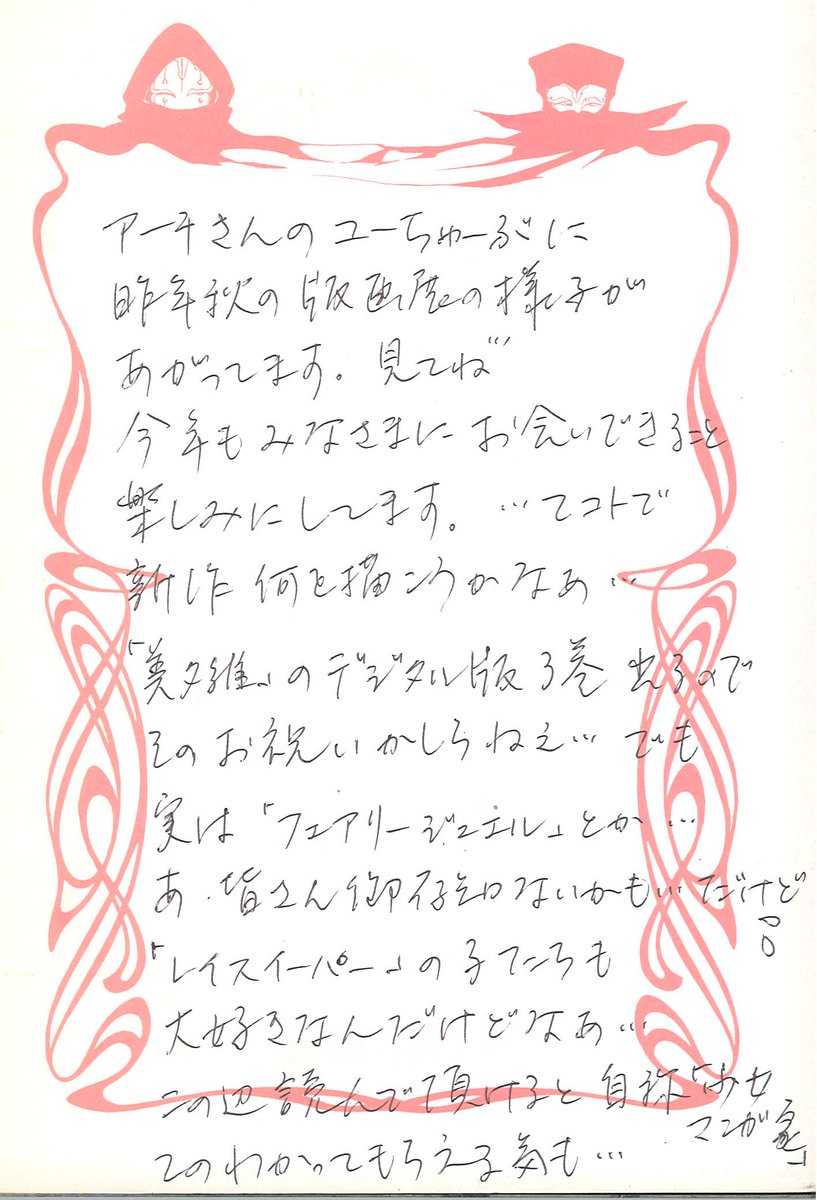 アーチさんのユーちゅーぶに
昨年秋の版画展の様子が
あがってます。見てね
今年もみなさまにお会いできること
楽しみにしてます。…てコトで
新作何を描こうかなぁ…
「美夕維」のデジタル版3巻出るので
そのお祝いかしらねえ…でも
実は「フェアリージュエル」とか…
あ、皆さん御存知ないかもだけど
「レイスイーパー」の子たちも
大好きなんだけどなあ…
この辺読んで頂けると自称「少女
マンガ家」
てのわかってもらえる気も…